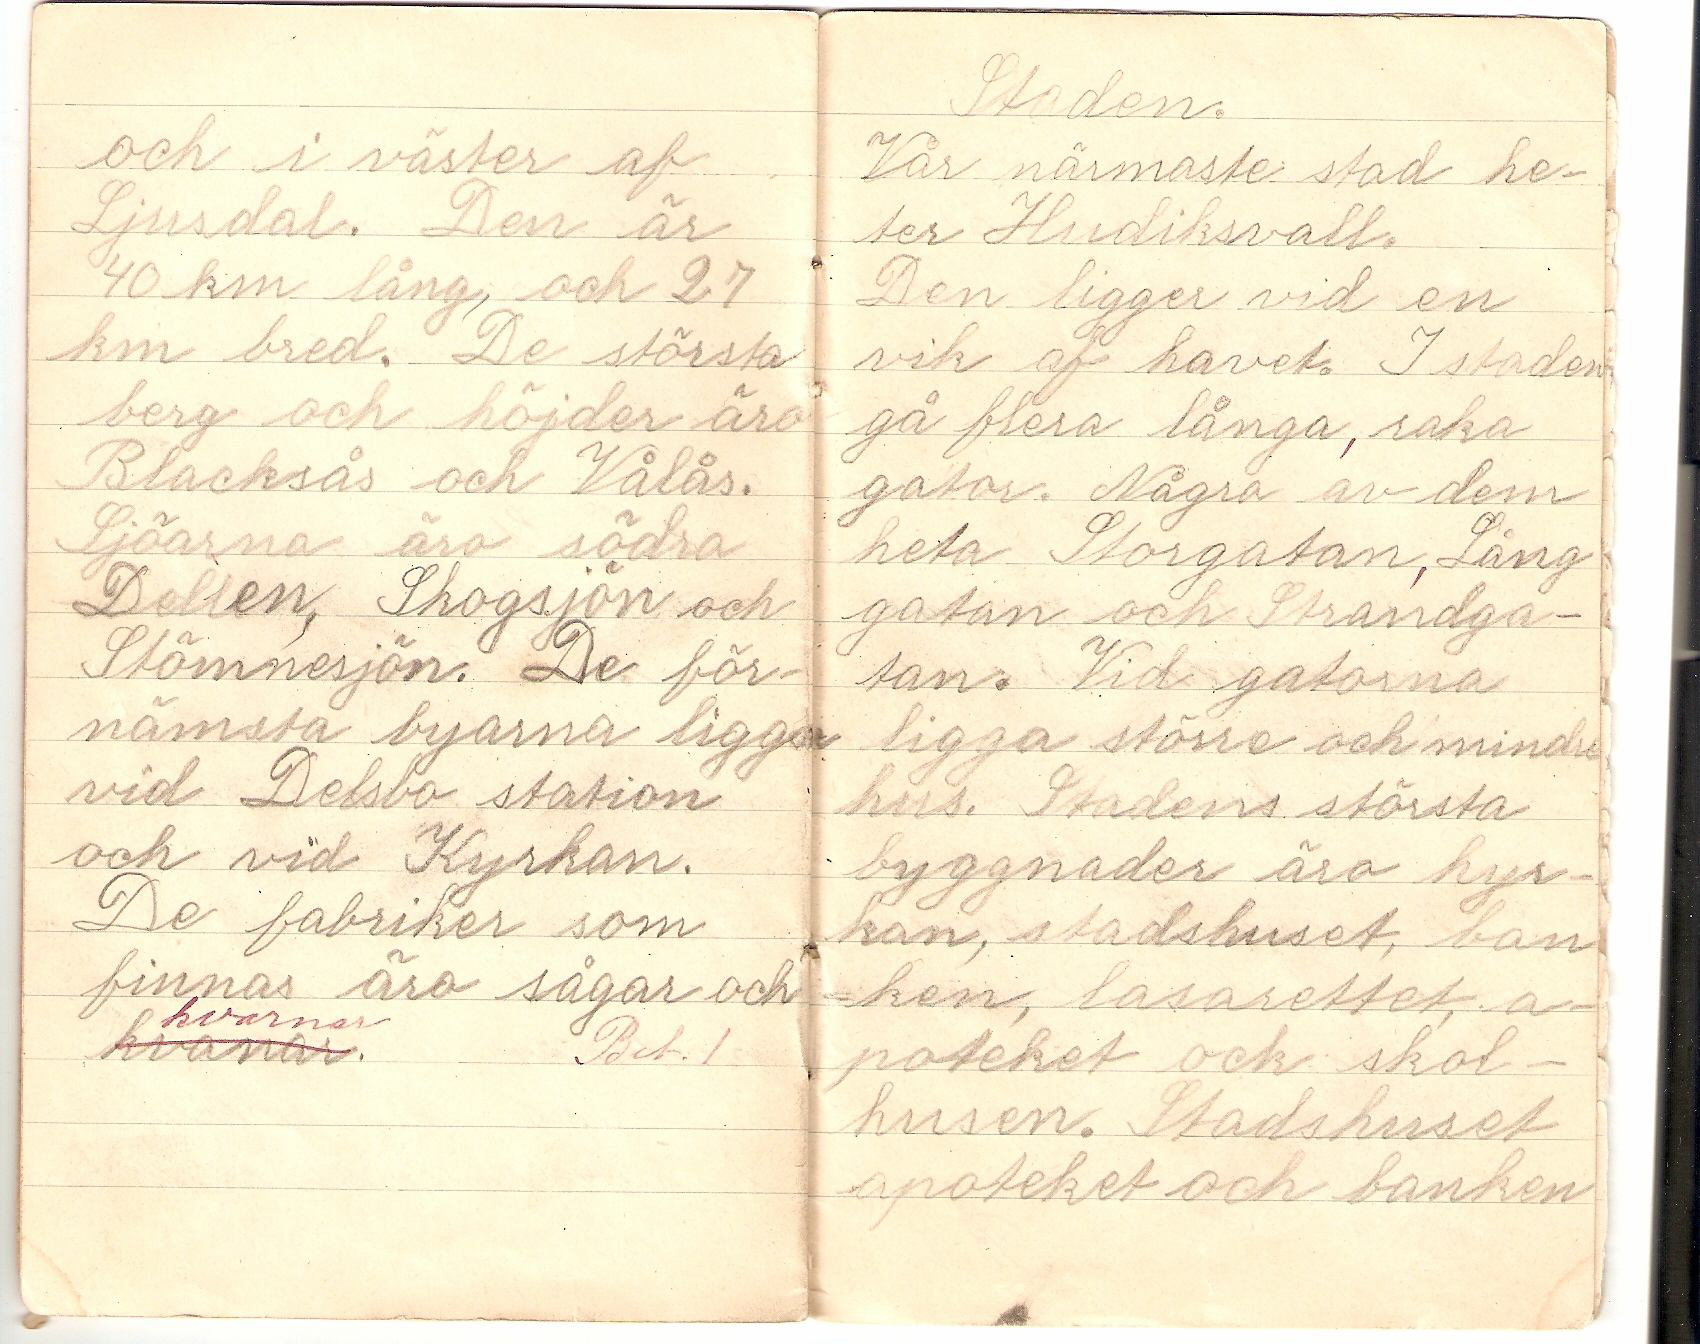 och i väster af
Ljusdal. Den är
40 km lång, och 27
km bred. De största
berg och höjder äro
Blacksås och Vålås.
Sjöarna äro södra
Dellen, Skogsjön och
Stömnesjön. De för-
nämsta byarna ligga
vid Delsbo station
och vid Kyrkan.
De fabriker som
finnas äro sågar och
kvarnar
kvanar.
Bet. 1
Staden.
Vår närmaste stad he-
ter Hudiksvall.
Den ligger vid en
vik af havet. I staden
gå flera långa, raka
gator. Några av dem
heta Storgatan, Lång
gatan och Strandga-
tan. Vid gatorna
ligga större och mindre
hus. Stadens största
byggnader äro kyr-
kan, stadshuset, ban
-ken, lasarettet, a-
poteket och skol-
husen. Stadshuset
apoteket och banken